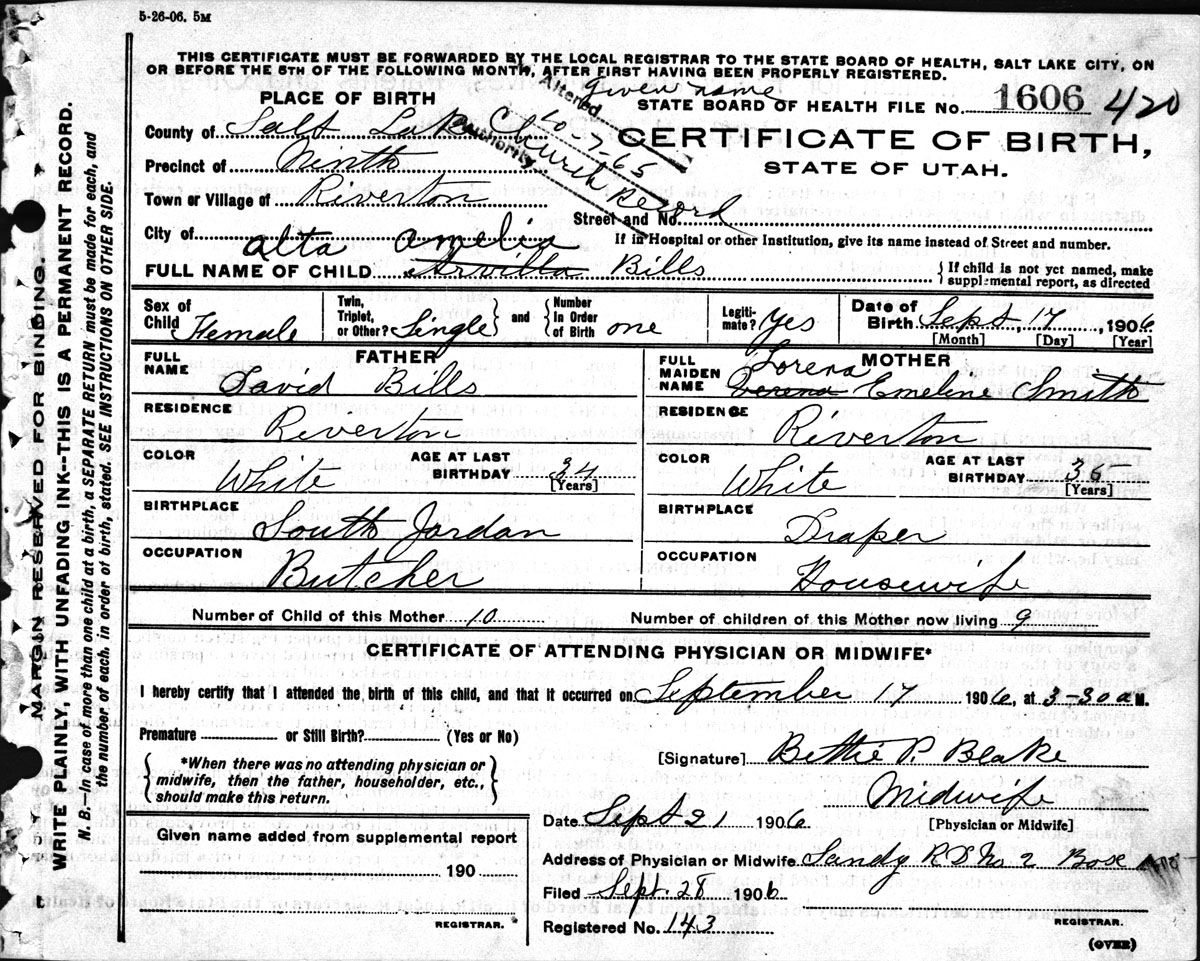 5-26-06. 5M
THIS CERTIFICATE MUST BE FORWARDED BY THE LOCAL REGISTRAR TO THE STATE BOARD OF HEALTH, SALT LAKE CITY, ON
OR BEFORE THE 5TH OF THE FOLLOWING MONTH, AFTER FIRST HAVING BEEN PROPERLY REGISTERED.
Altered Given name
10-7-65
Authority Church Record
STATE BOARD OF HEALTH FILE No. 1606 420
PLACE OF BIRTH
CERTIFICATE OF BIRTH,
STATE OF UTAH.
County of Salt Lake
Precinct of Ninth
Town or Village of Riverton
Street and No.
City of
If in Hospital or other Institution, give its name instead of Street and number.
Alta Amelia
FULL NAME OF CHILD Arvilla Bills
{If child is not yet named, make supplemental report, as directed
Sex of Child Female
Twin, Triplet, or Other? Single} and {Number In Order of Birth one
Legitimate? Yes
Date of Birth Sept, 17, 1906
[Month] [Day] [Year]
FATHER
FULL NAME David Bills
RESIDENCE Riverton
COLOR White AGE AT LAST BIRTHDAY 34 [Years]
BIRTHPLACE South Jordan
OCCUPATION Butcher
MOTHER
FULL MAIDEN NAME Lorena Emeline Smith
RESIDENCE Riverton
COLOR White AGE AT LAST BIRTHDAY 35 [Years]
BIRTHPLACE Draper
OCCUPATION Housewife
Number of Child of this Mother 10 Number of children of this Mother now living 9
CERTIFICATE OF ATTENDING PHYSICIAN OR MIDWIFE*
I hereby certify that I attended the birth of this child, and that it occurred on September 17 1906, at 3-30 a M.
Premature or Still Birth? (Yes or No)
{*When there was no attending physician or
midwife, then the father, householder, etc.,
should make this return.}
[Signature] Bettie P. Blake
Midwife
[Physician or Midwife]
Date Sept 21 1906
Address of Physician or Midwife Sandy R D No 2 Box
Filed Sept. 28 1906
Registered No. 143
REGISTRAR.
(OVER)
Given name added from supplemental report
190
REGISTRAR.
MARGIN RESERVED FOR BINDING.
WRITE PLAINLY, WITH UNFADING INK--THIS IS A PERMANENT RECORD.
N. B.--In case of more than one child at a birth, a SEPARATE RETURN must be made for each, and
the number of each, in order of birth, stated. SEE INSTRUCTIONS ON OTHER SIDE.